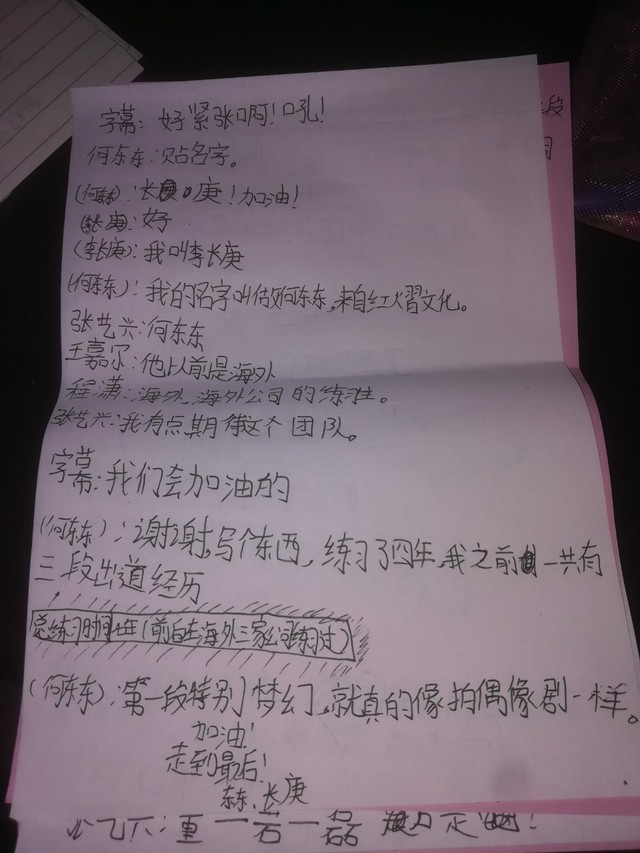 字幕：好紧张啊！吼！
何东东：贴名字。
(何东东)：长庚！加油！
(李长庚)：好
(李长庚)：我叫李长庚
(何东东)：我的名字叫做何东东，来自红熠文化。
张艺兴：何东东
王嘉尔：他以前是海外
程潇：海外，海外公司的练习生。
张艺兴：我有点期待这个团队。
字幕：我们会加油的
(何东东)：谢谢，写个东西，练习了四年，我之前一共有
三段出道经历
总练习时间七年(前后在海外三家公司练习过)
(何东东)：第一段特别梦幻，就真的像拍偶像剧一样。
加油！
走到最后！
东东、长庚
重一若一磊
段